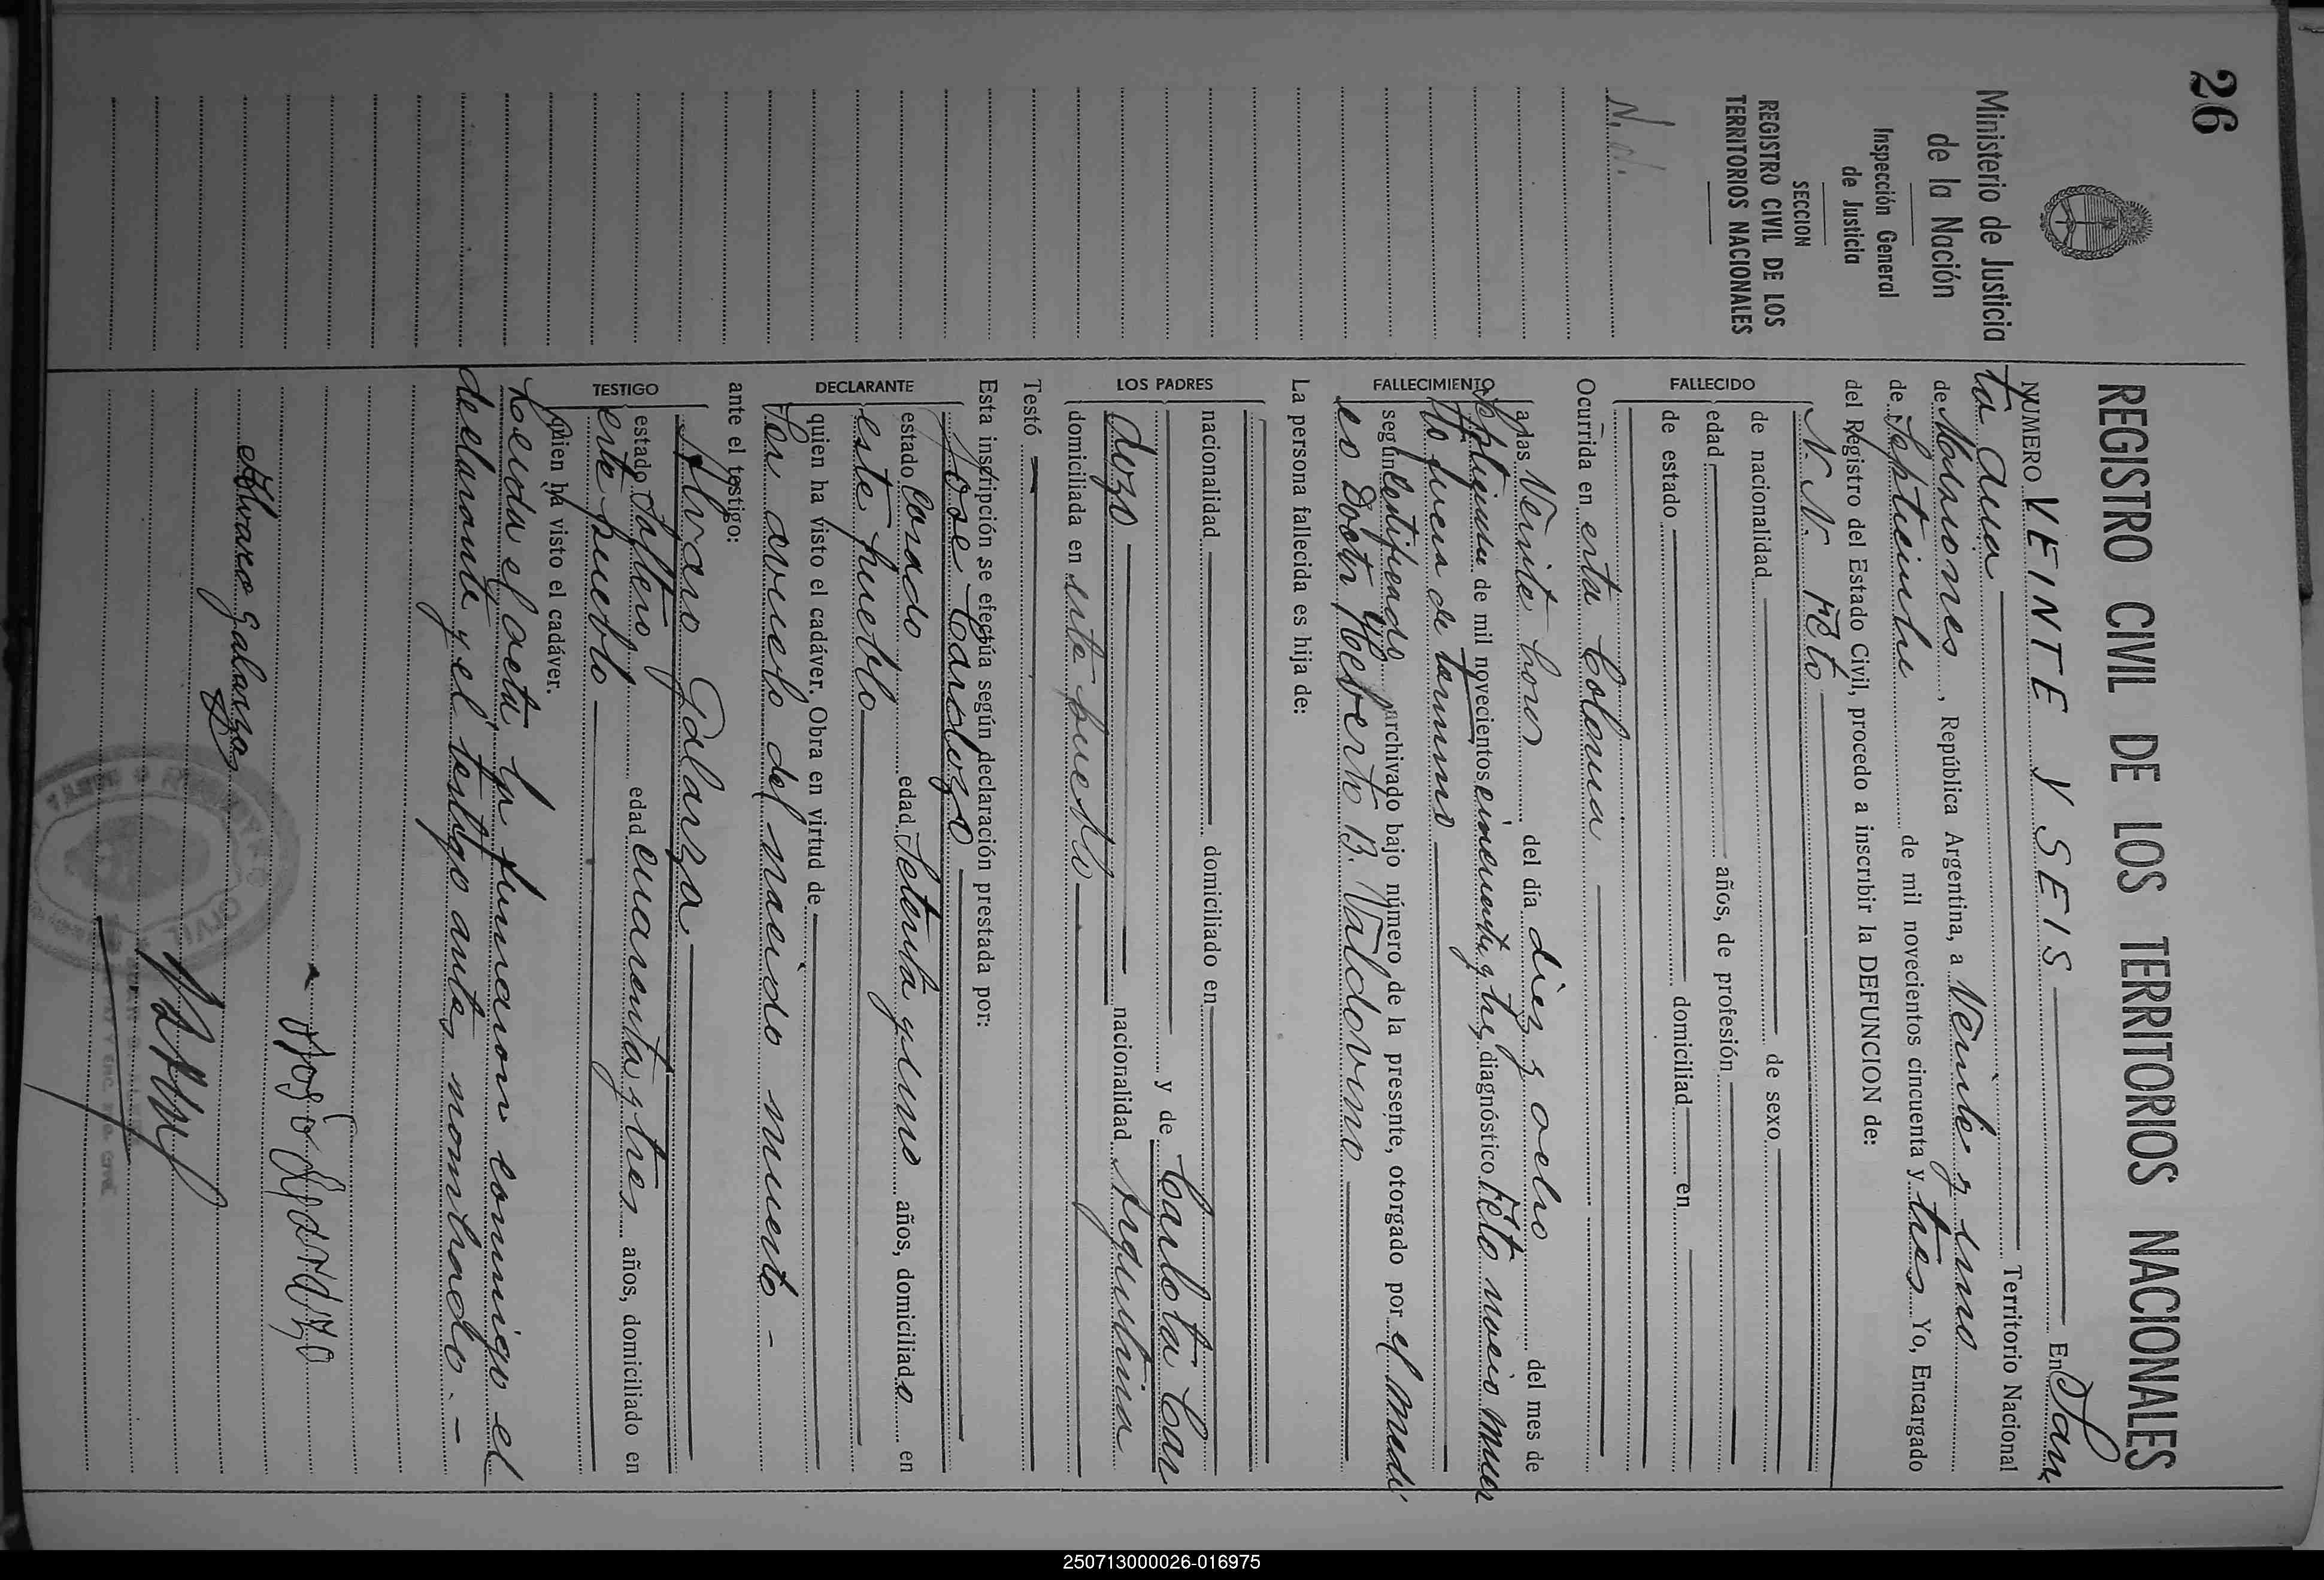 26
Ministerio de Justicia
de la Nación
Inspección General
de Justicia
SECCION
REGISTRO CIVIL DE LOS
TERRITORIOS NACIONALES
N.N.
REGISTRO CIVIL DE LOS TERRITORIOS NACIONALES
NUMERO VEINTE Y SEIS En San
ta Ana Territorio Nacional
de Misiones, República Argentina, a Veinte y uno
de Septiembre de mil novecientos cincuenta y tres Yo, Encargado
del Registro del Estado Civil, procedo a inscribir la DEFUNCION de:
FALLECIDO
N. N. Feto
de nacionalidad de sexo
edad años, de profesión
de estado domiciliad en
Ocurrida en esta Colonia
FALLECIMIENTO
a las Veinte horas del día diez y ocho del mes de
Septiembre de mil novecientos cincuenta y tres, diagnóstico Feto nacio muer
to fuera de termino
según certificado archivado bajo número de la presente, otorgado por el medi
co Doctor Heberto B. Valdovino
La persona fallecida es hija de:
LOS PADRES
nacionalidad domiciliado en
y de Carlota Car
dozo nacionalidad Argentina
domiciliada en este pueblo
Testó
Esta inscripción se efectúa según declaración prestada por:
DECLARANTE
Jose Cardozo
estado Casado edad Setenta y uno años, domiciliado en
este pueblo
quien ha visto el cadáver. Obra en virtud de
Ser avuelo del nacido muerto -
ante el testigo:
TESTIGO
Alvaro Galarza
estado Soltero edad cuarenta y tres años, domiciliado en
este pueblo
quien ha visto el cadáver.
Leida el acta la firmaron conmigo el
declarante y el testigo antes nombrado. -
Alvaro Galarza
REGISTRO CIVIL
250713000026-016975